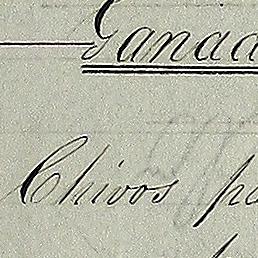 Ganad
Chivos pa